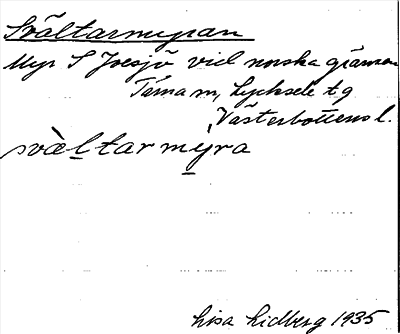 Svältarmyran
Myr S Joesjö vid norska gränsen
Tärna sn, Lycksele tg
Västerbottens l.
svàltarmỳra
Lisa Lidberg 1935